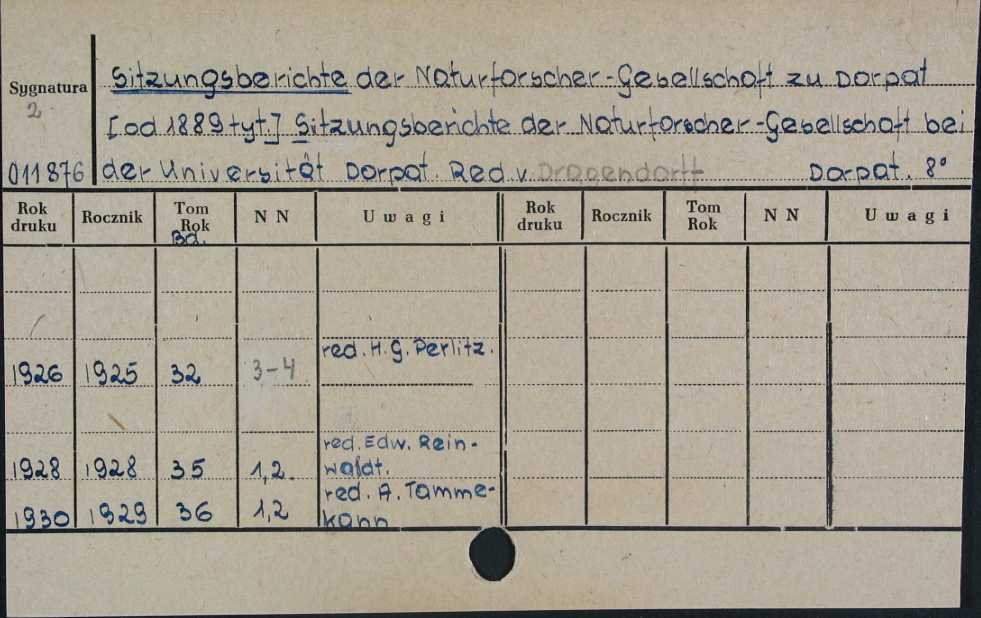 Sygnatura
2
011876
Sitzungsberichte der Naturforscher-Gesellschaft zu Dorpat
[od 1889 tyt.] Sitzungsberichte der Naturforscher-Gesellschaft bei
der Universität Dorpat. Red. v. Dragendorff Dorpat. 8°
Rok druku Rocznik Tom Rok Bd. NN Uwagi Rok druku Rocznik Tom Rok NN Uwagi
1926 1925 32 3-4 red. H. G. Perlitz.
1928 1928 35 1,2. red. Edw. Rein-
waldt.
1930 1929 36 1,2 red. A. Tamme-
kann